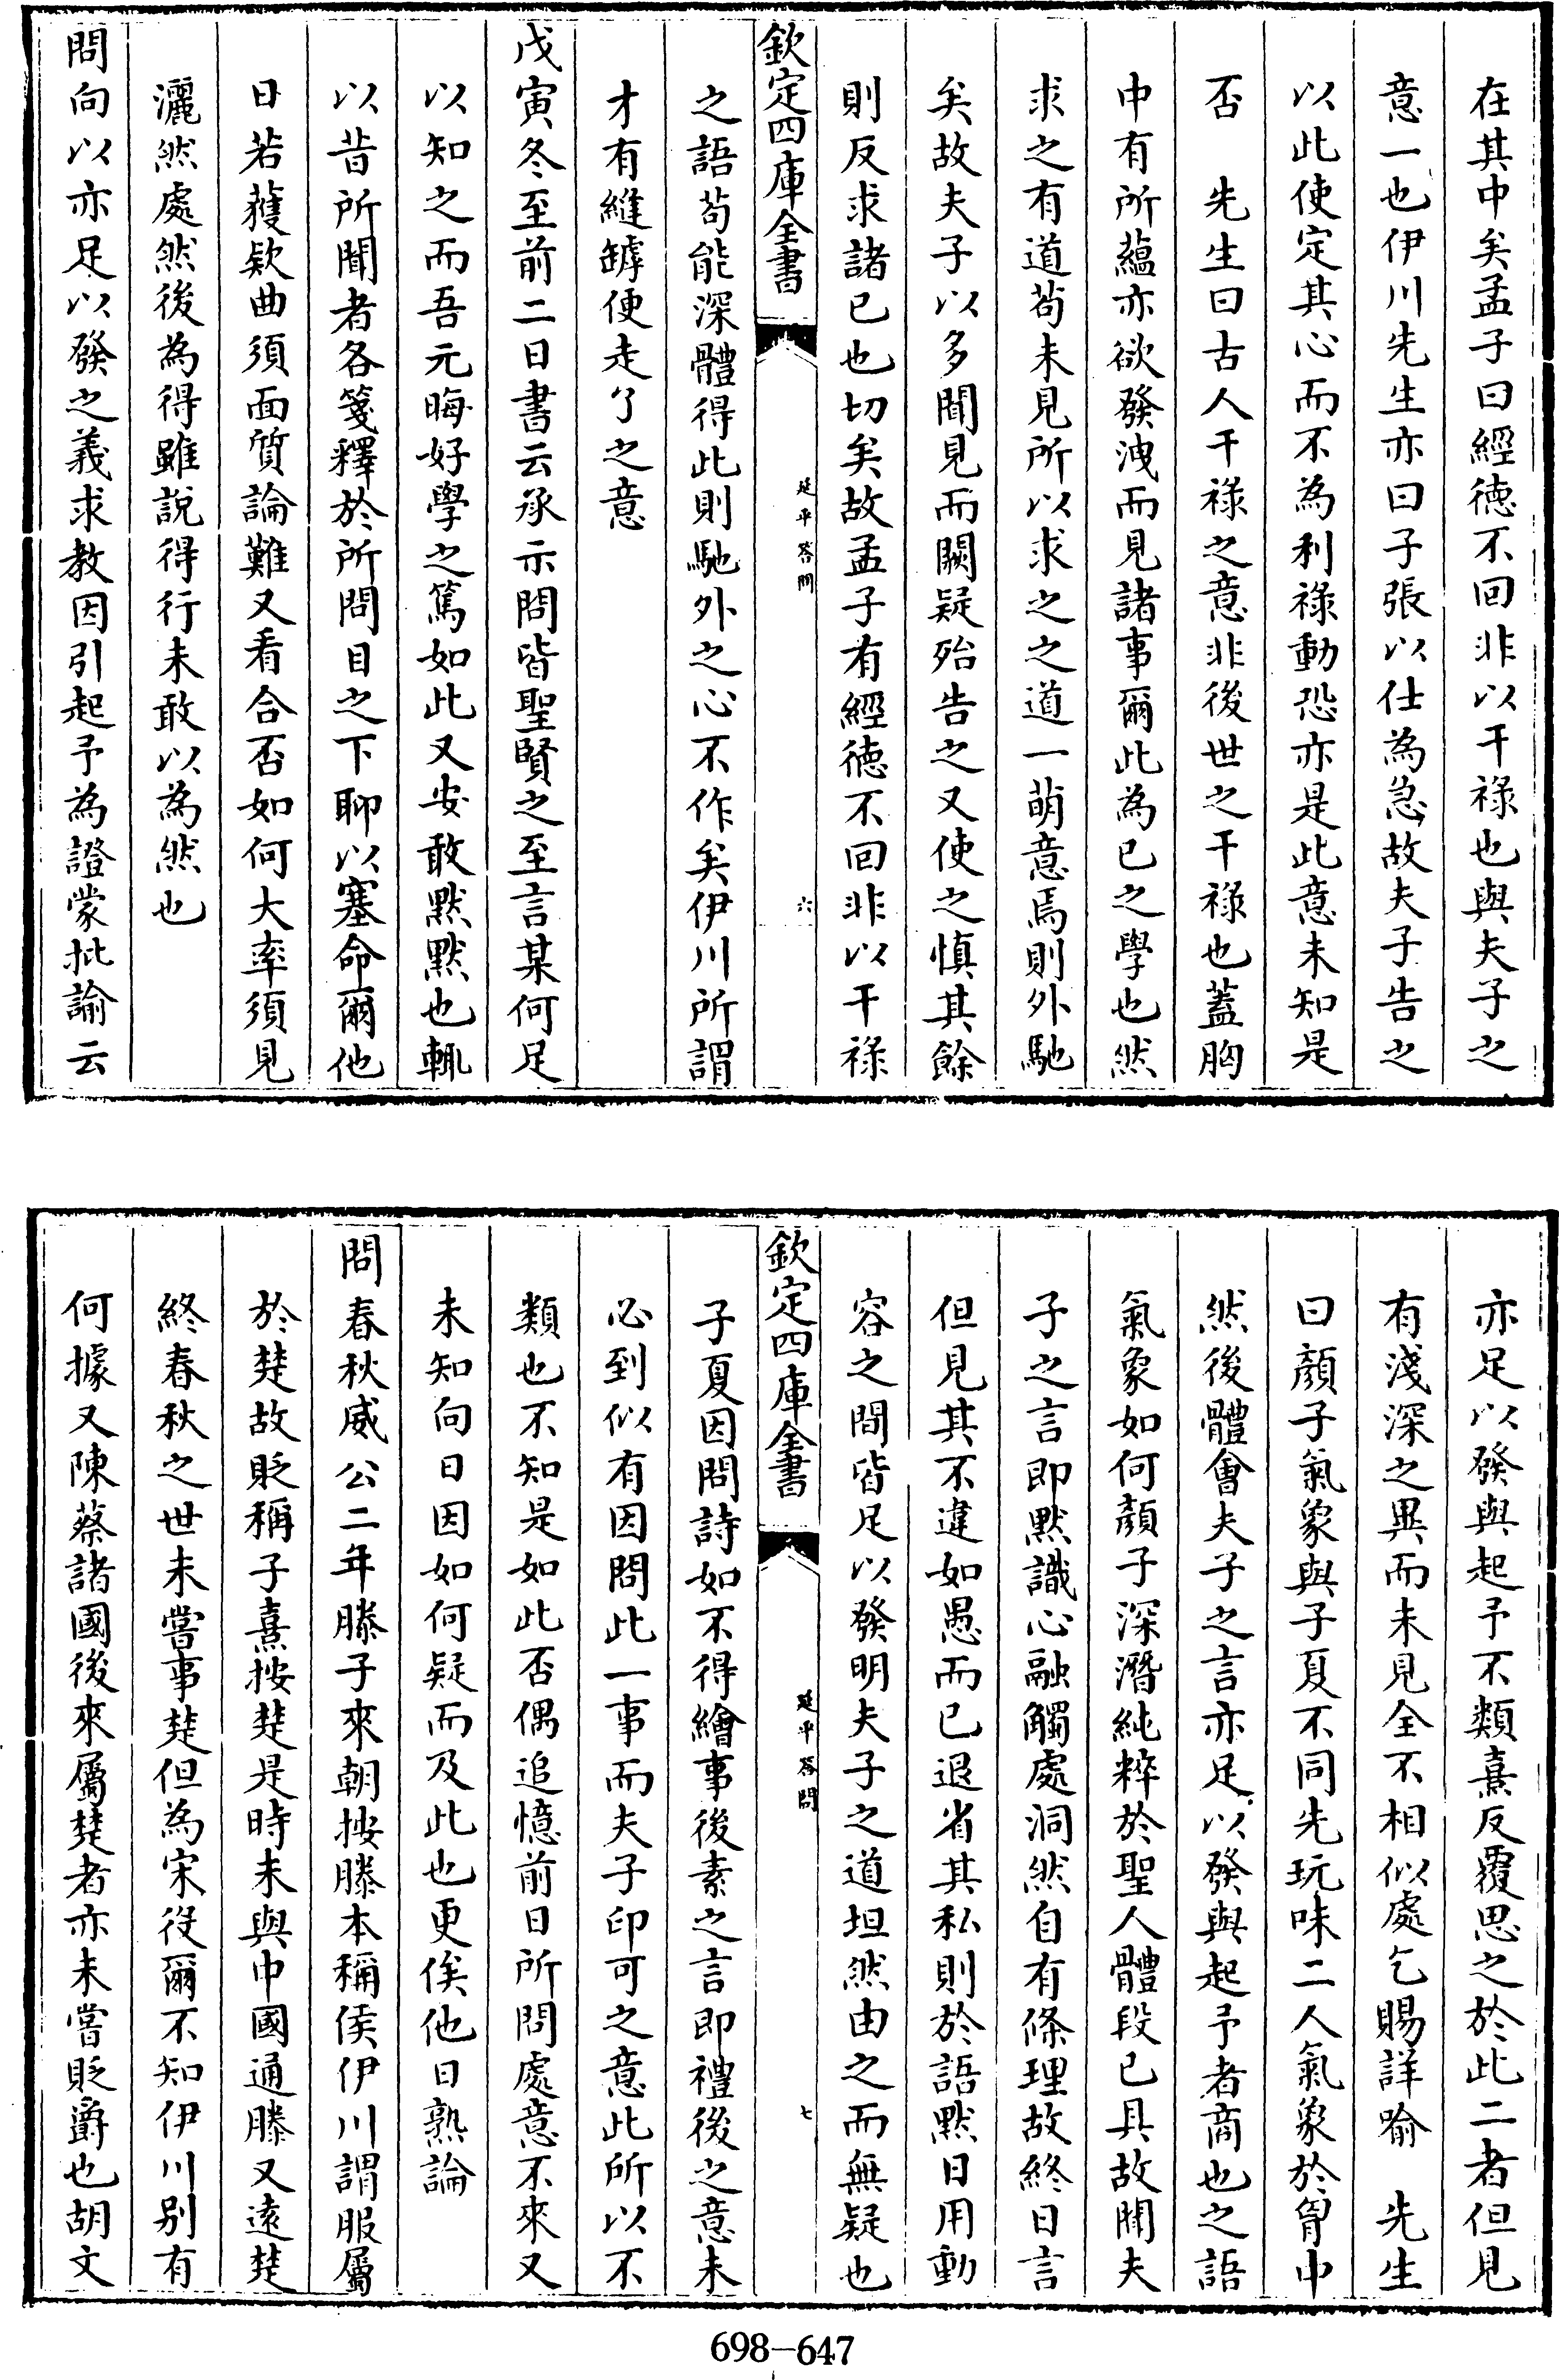 在其中矣孟子曰經徳不回非以干禄也與夫子之
意一也伊川先生亦曰子張以仕為急故夫子告之
以此使定其心而不為利禄動恐亦是此意未知是
否　先生曰古人干禄之意非後世之干禄也蓋胸
中有所藴亦欲發洩而見諸事爾此為已之學也然
求之有道苟未見所以求之之道一萌意焉則外馳
矣故夫子以多聞見而闕疑殆告之又使之慎其餘
則反求諸已也切矣故孟子有經徳不回非以干禄
欽定四庫全書
延平答問
六
之語苟能深體得此則馳外之心不作矣伊川所謂
才有縫罅便走了之意
戊寅冬至前二日書云承示問皆聖賢之至言某何足
以知之而吾元晦好學之篤如此又安敢默默也輒
以昔所聞者各箋釋於所問目之下聊以塞命爾他
日若獲欵曲須面質論難又看合否如何大率須見
灑然處然後為得雖說得行未敢以為然也
問向以亦足以發之義求教因引起予為證蒙批諭云
亦足以發與起予不類熹反覆思之於此二者但見
有淺深之異而未見全不相似處乞賜詳喻　先生
曰顔子氣象與子夏不同先玩味二人氣象於胷中
然後體會夫子之言亦足以發與起予者商也之語
氣象如何顔子深潛純粹於聖人體段已具故聞夫
子之言即默識心融觸處洞然自有條理故終日言
但見其不違如愚而已退省其私則於語默日用動
容之間皆足以發明夫子之道坦然由之而無疑也
欽定四庫全書
延平答問
七
子夏因問詩如不得繪事後素之言即禮後之意未
必到似有因問此一事而夫子印可之意此所以不
類也不知是如此否偶追憶前日所問處意不來又
未知向日因如何疑而及此也更俟他日熟論
問春秋威公二年滕子來朝按滕本稱侯伊川謂服屬
於楚故貶稱子熹按楚是時未與中國通滕又遠楚
終春秋之世未嘗事楚但為宋役爾不知伊川别有
何據又陳蔡諸國後來屬楚者亦未嘗貶爵也胡文
698-647